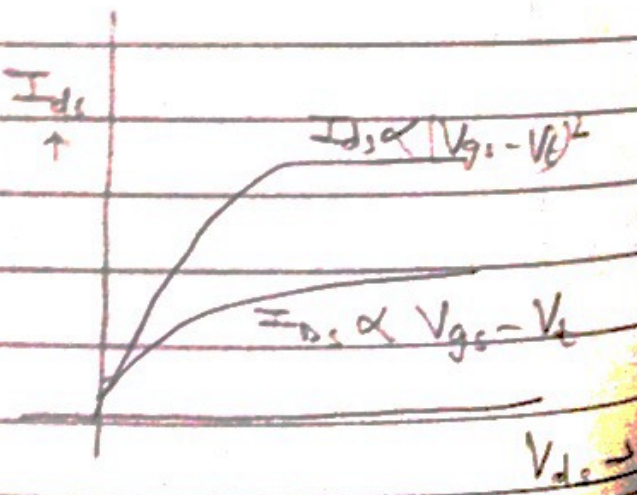 Ids
↑
Ids ∝ (Vgs - Vt)²
IDs ∝ Vgs - Vt
Vds →